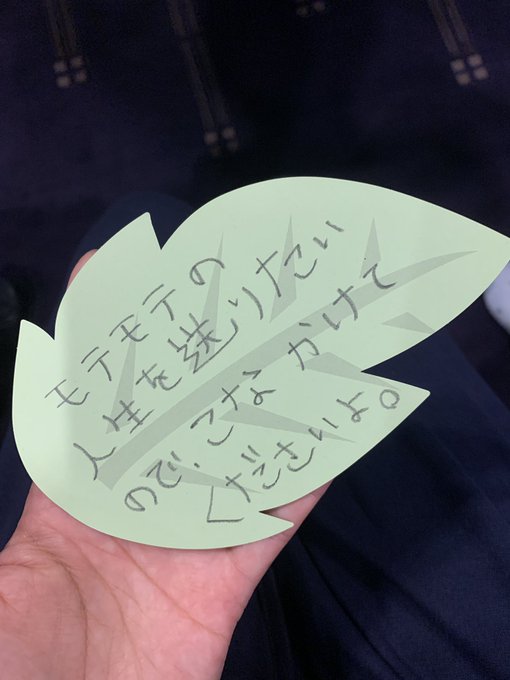 モテモテの
人生を送りたい
ので、こなかけて
くださいよ。